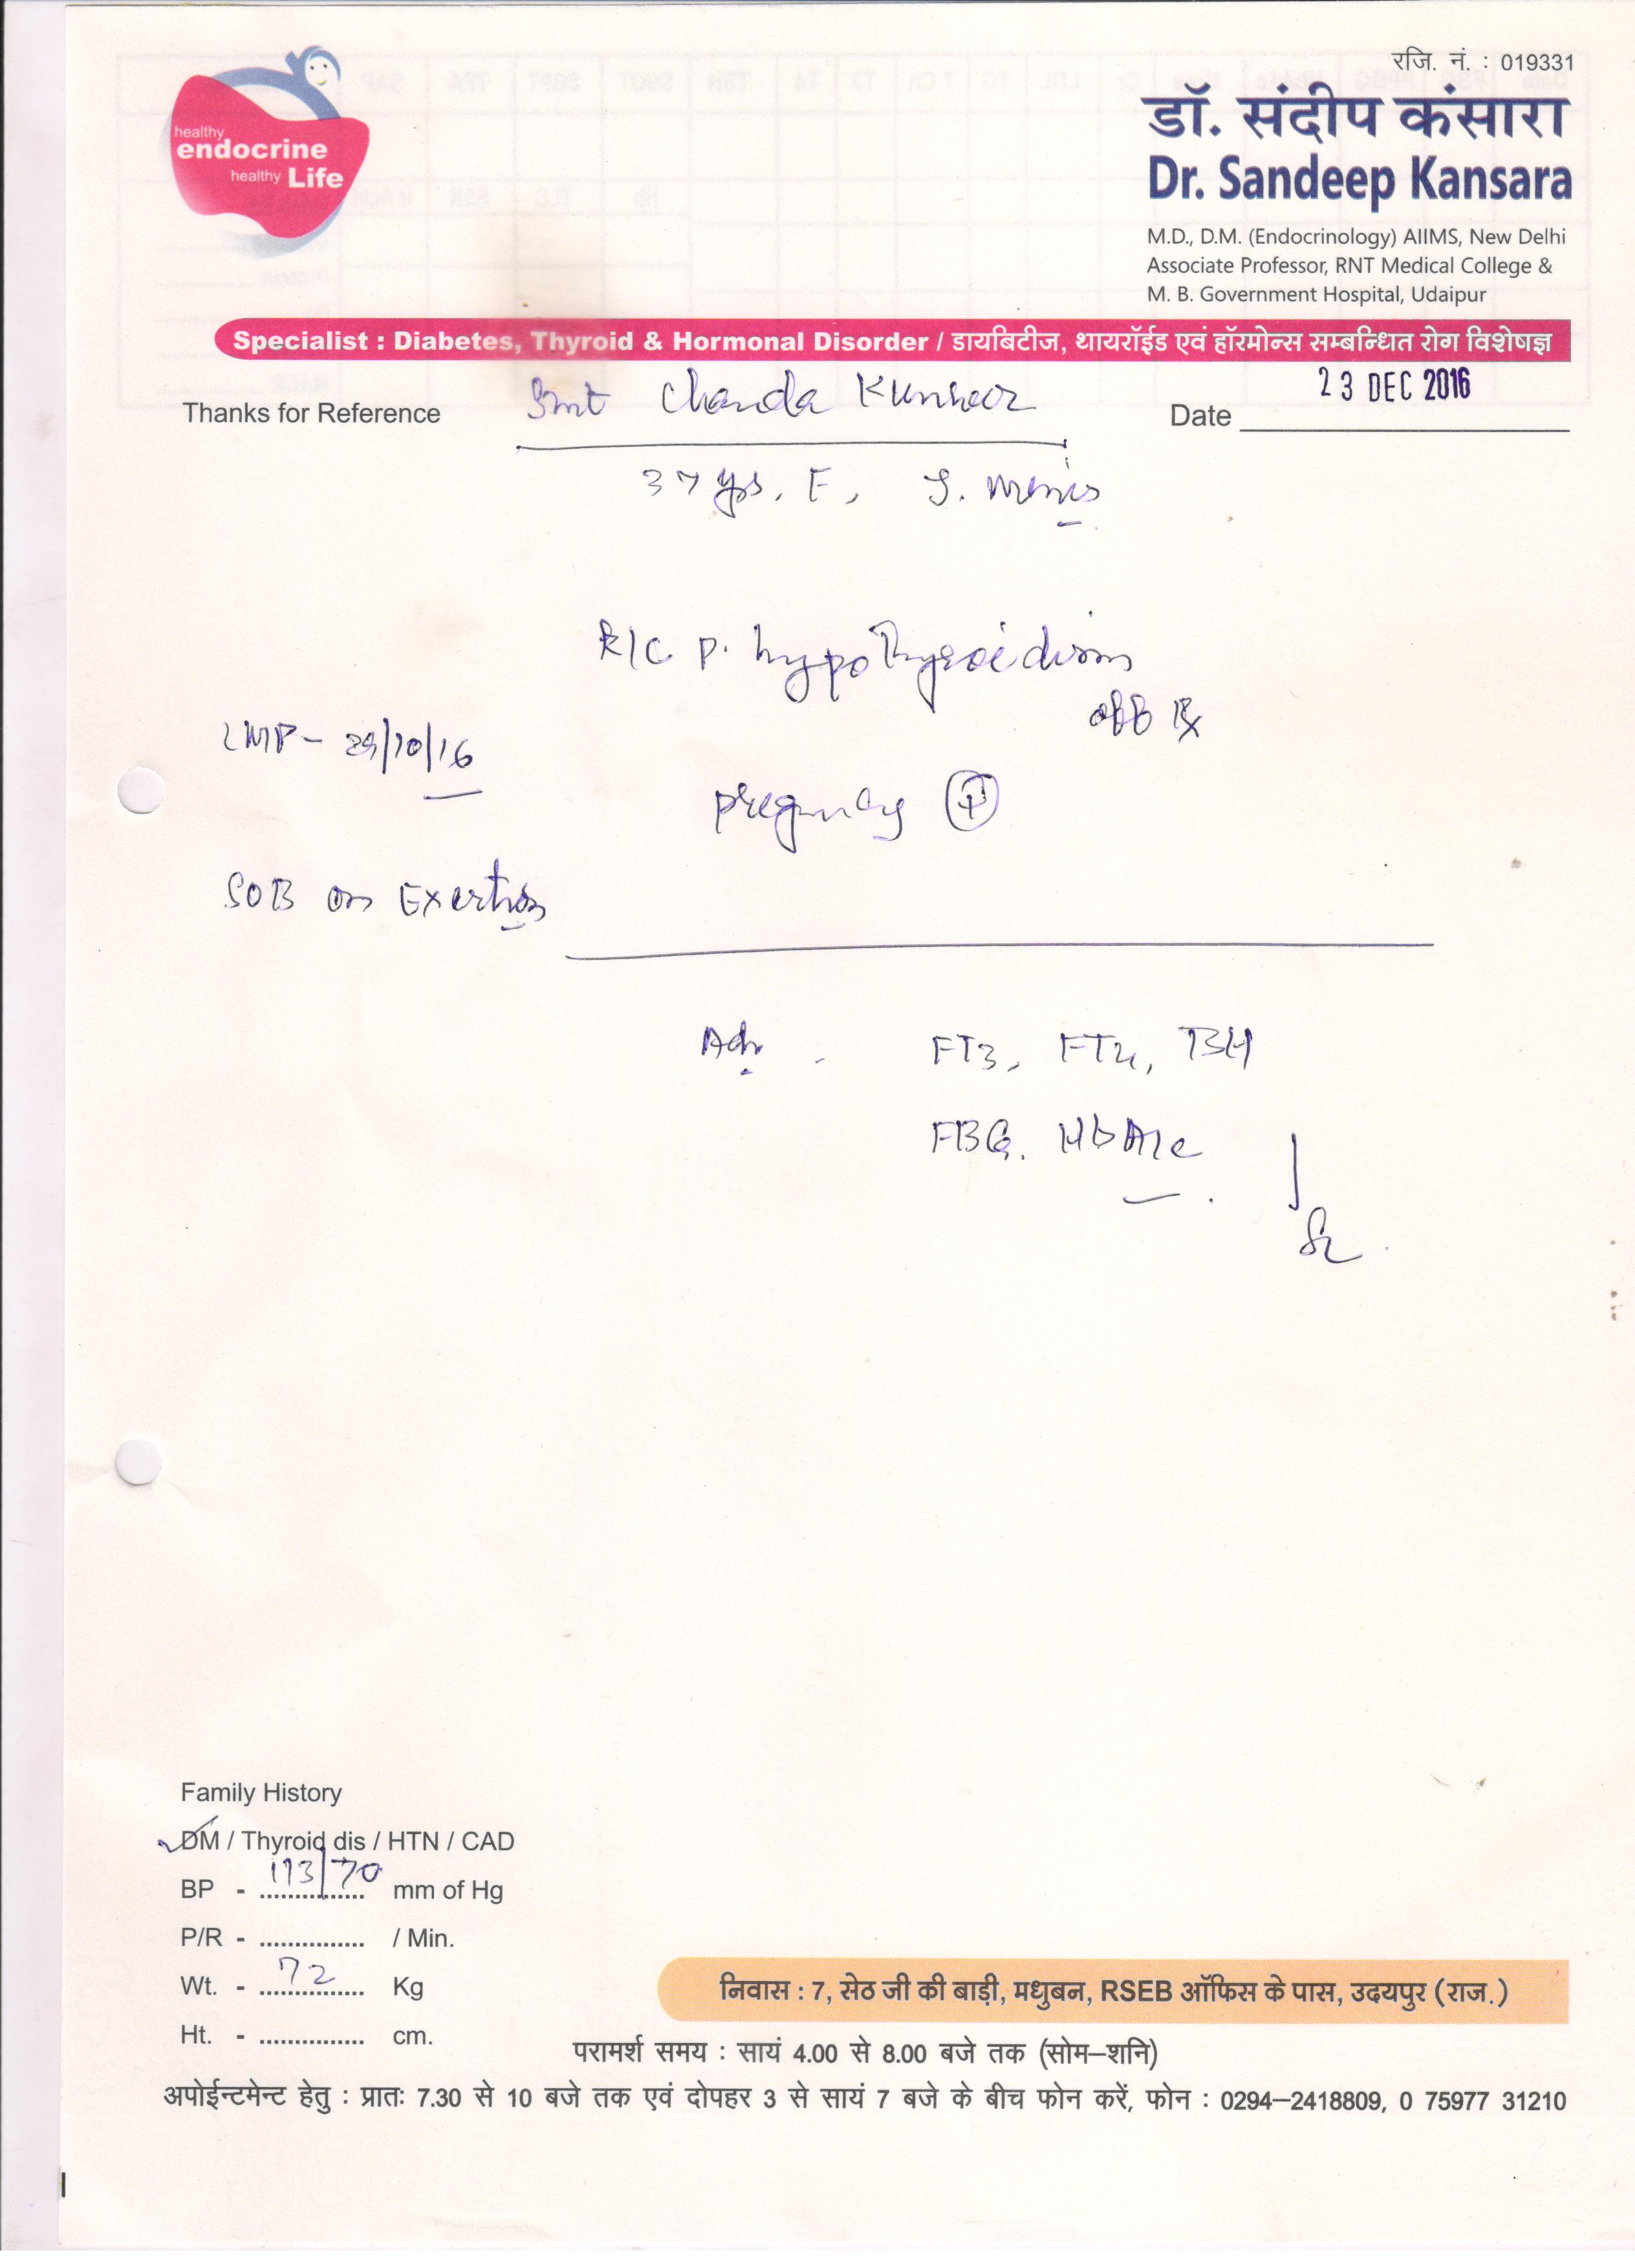 रजि. नं. : 019331
healthy
endocrine
healthy Life
डॉ. संदीप कंसारा
Dr. Sandeep Kansara
M.D., D.M. (Endocrinology) AIIMS, New Delhi
Associate Professor, RNT Medical College &
M. B. Government Hospital, Udaipur
Specialist : Diabetes, Thyroid & Hormonal Disorder / डायबिटीज, थायरॉईड एवं हॉरमोन्स सम्बन्धित रोग विशेषज्ञ
Thanks for Reference Smt Chanda Kunwar Date 23 DEC 2016
37 yrs. F,
K/C P. hypothyroidism
off Rx
LMP - /10/16
pregnancy +
SOB on Exertion
Adv FT3, FT4, TSH
FBG. HbA1c
Family History
DM / Thyroid dis / HTN / CAD
BP - 113/70 mm of Hg
P/R - ............... / Min.
Wt. - 72 Kg
Ht. - ............... cm.
निवास : 7, सेठ जी की बाड़ी, मधुबन, RSEB ऑफिस के पास, उदयपुर (राज.)
परामर्श समय : सायं 4.00 से 8.00 बजे तक (सोम–शनि)
अपोईन्टमेन्ट हेतु : प्रातः 7.30 से 10 बजे तक एवं दोपहर 3 से सायं 7 बजे के बीच फोन करें, फोन : 0294–2418809, 0 75977 31210